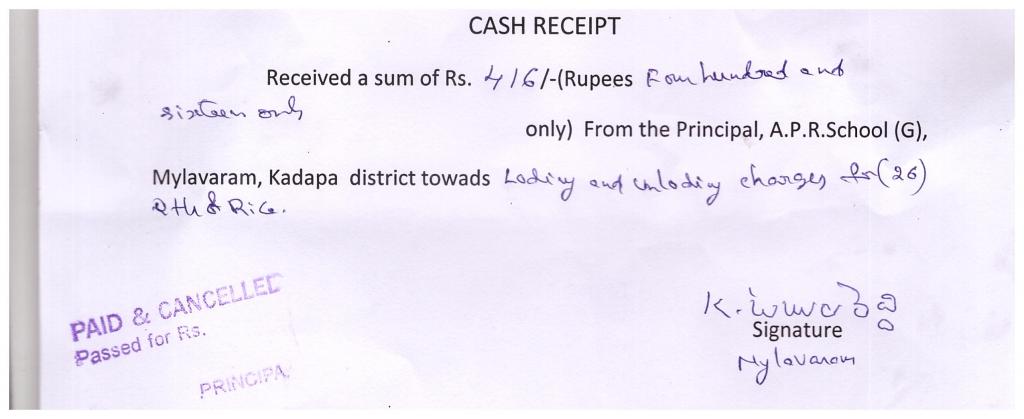 CASH RECEIPT
Received a sum of Rs. 416/-(Rupees Four hundred and
sixteen only
only) From the Principal, A.P.R.School (G),
Mylavaram, Kadapa district towads Loding and unloding charges for (26)
Qtls Rice.
PAID & CANCELLED
Passed for Rs.
PRINCIPA
K.
Signature
Mylavaram